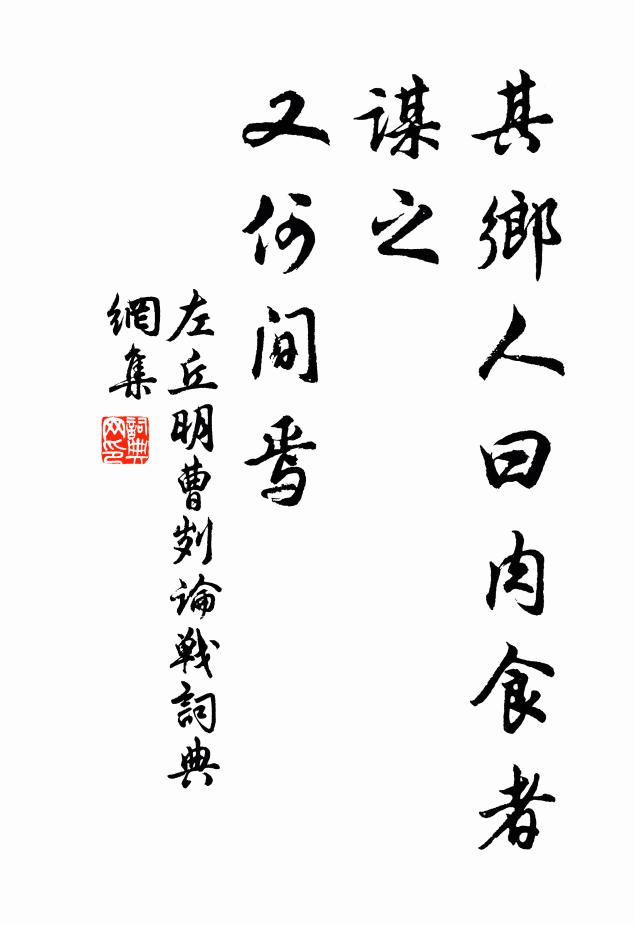 其鄉人曰肉食者
謀之
又何間焉
左丘明曹刿論戰詞典
網集
詞典
网印